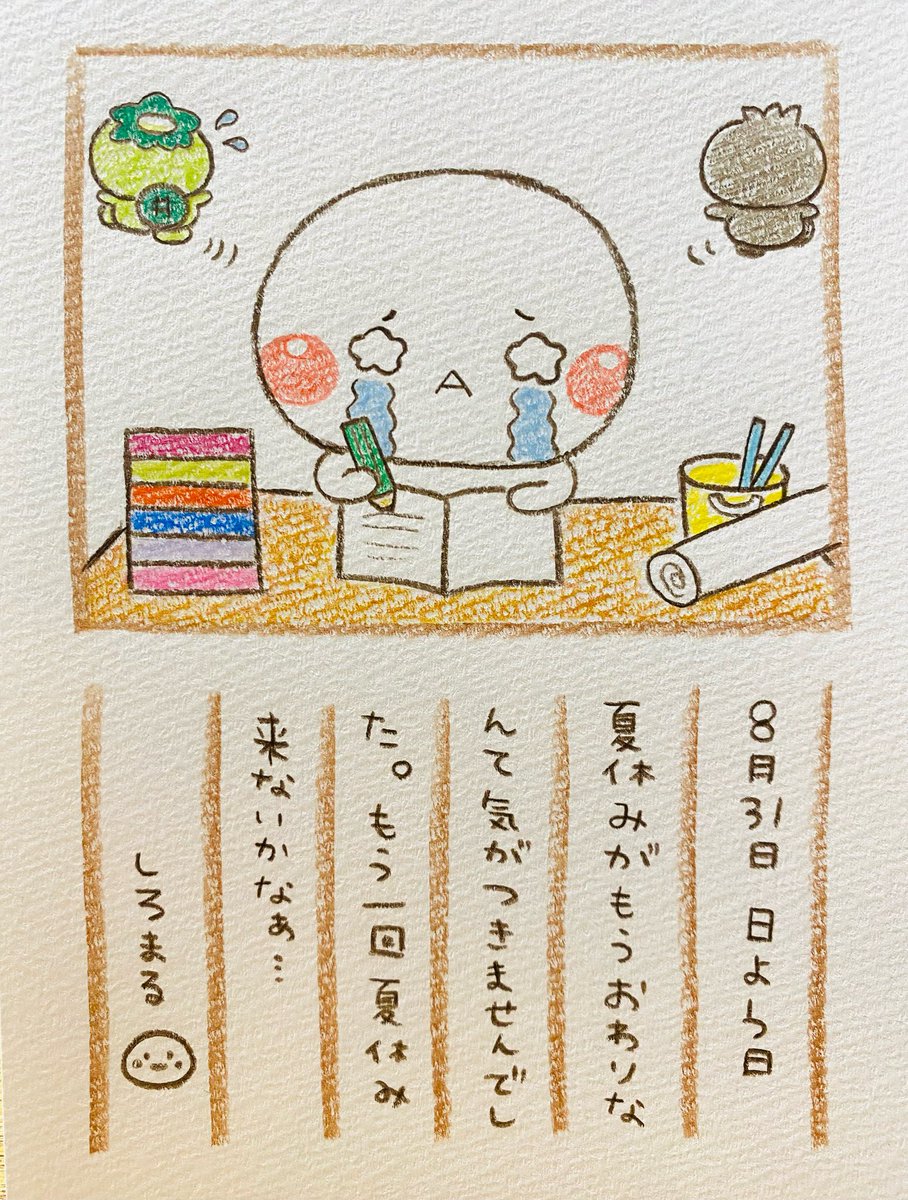 8月31日 日よう日
夏休みがもうおわりな
んて気がつきませんでし
た。もう一回夏休み
来ないかなぁ…
しろまる